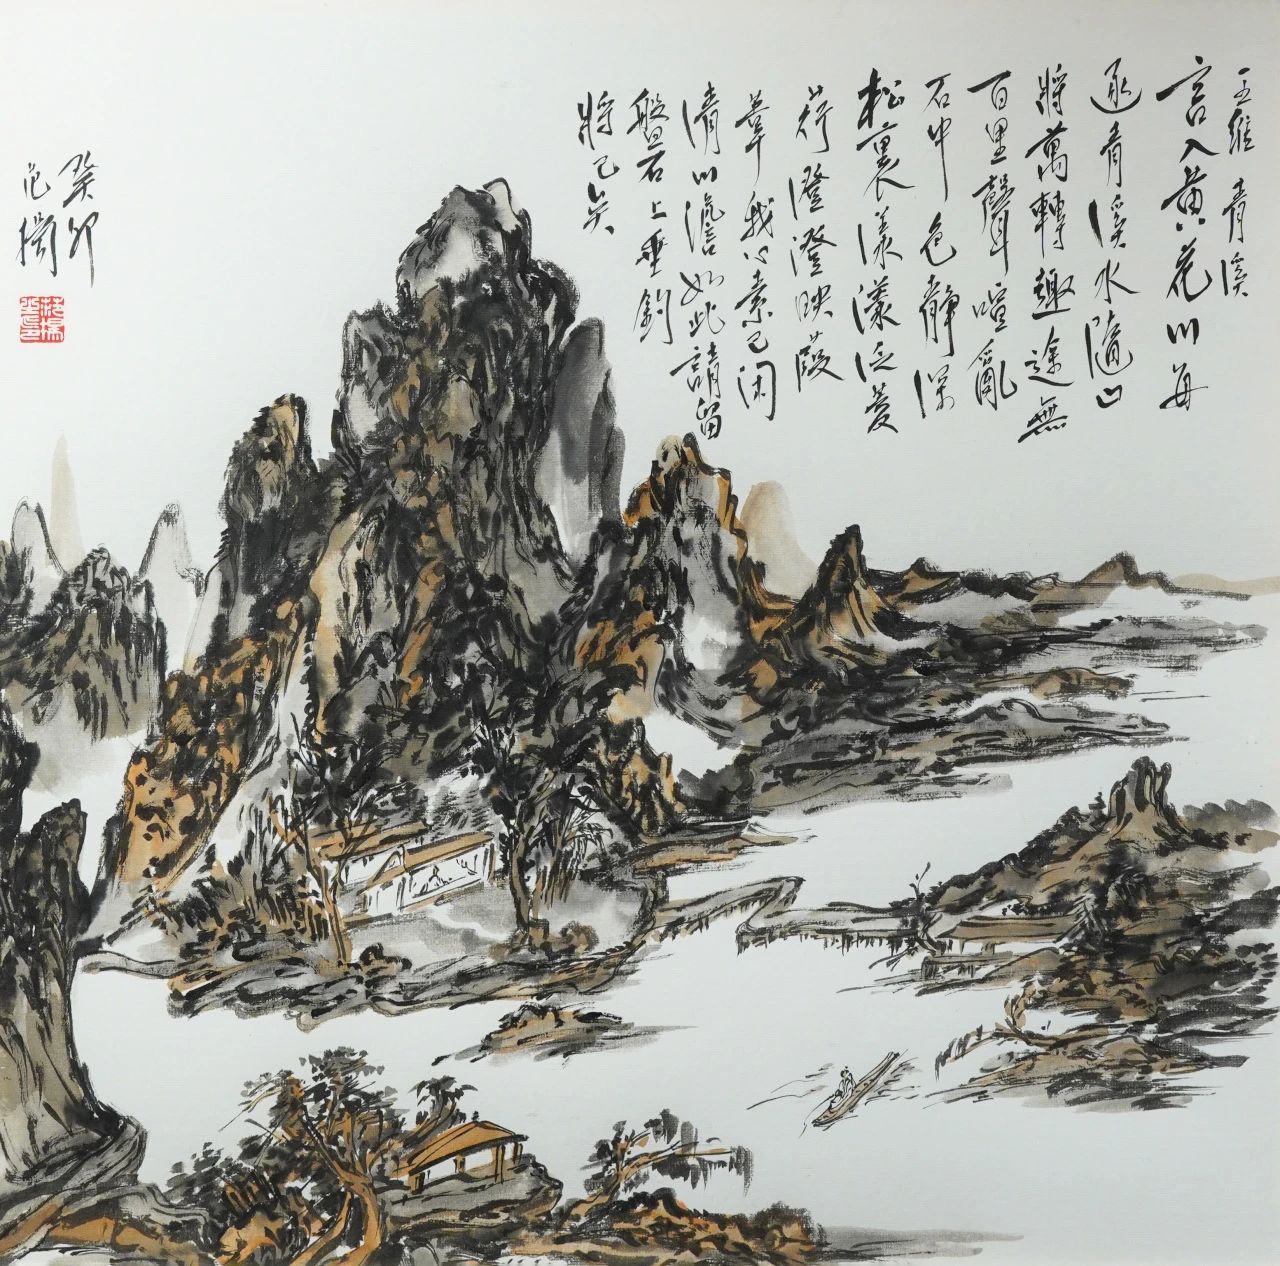 王維 青溪
言入黃花川每
逐青溪水隨山
將萬轉趣途無
百里聲喧亂
石中色靜深
松裏漾漾泛菱
荇澄澄映葭
葦我心素已閑
清川澹如此請留
盤石上垂釣
將已矣
癸卯
范揚